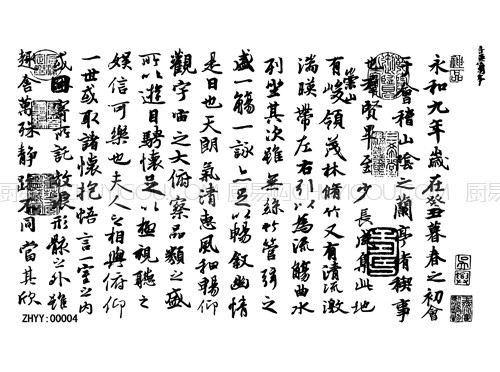 永和九年歲在癸丑暮春之初會
于會稽山陰之蘭亭脩稧事
也羣賢畢至少長咸集此地
有崇山峻領茂林脩竹又有清流激
湍暎帶左右引以為流觴曲水
列坐其次雖無絲竹管弦之
盛一觴一詠亦足以暢敘幽情
是日也天朗氣清惠風和暢仰
觀宇宙之大俯察品類之盛
所以遊目騁懷足以極視聽之
娛信可樂也夫人之相與俯仰
一世或取諸懷抱悟言一室之內
或因寄所託放浪形骸之外雖
趣舍萬殊靜躁不同當其欣
ZHYY:00004